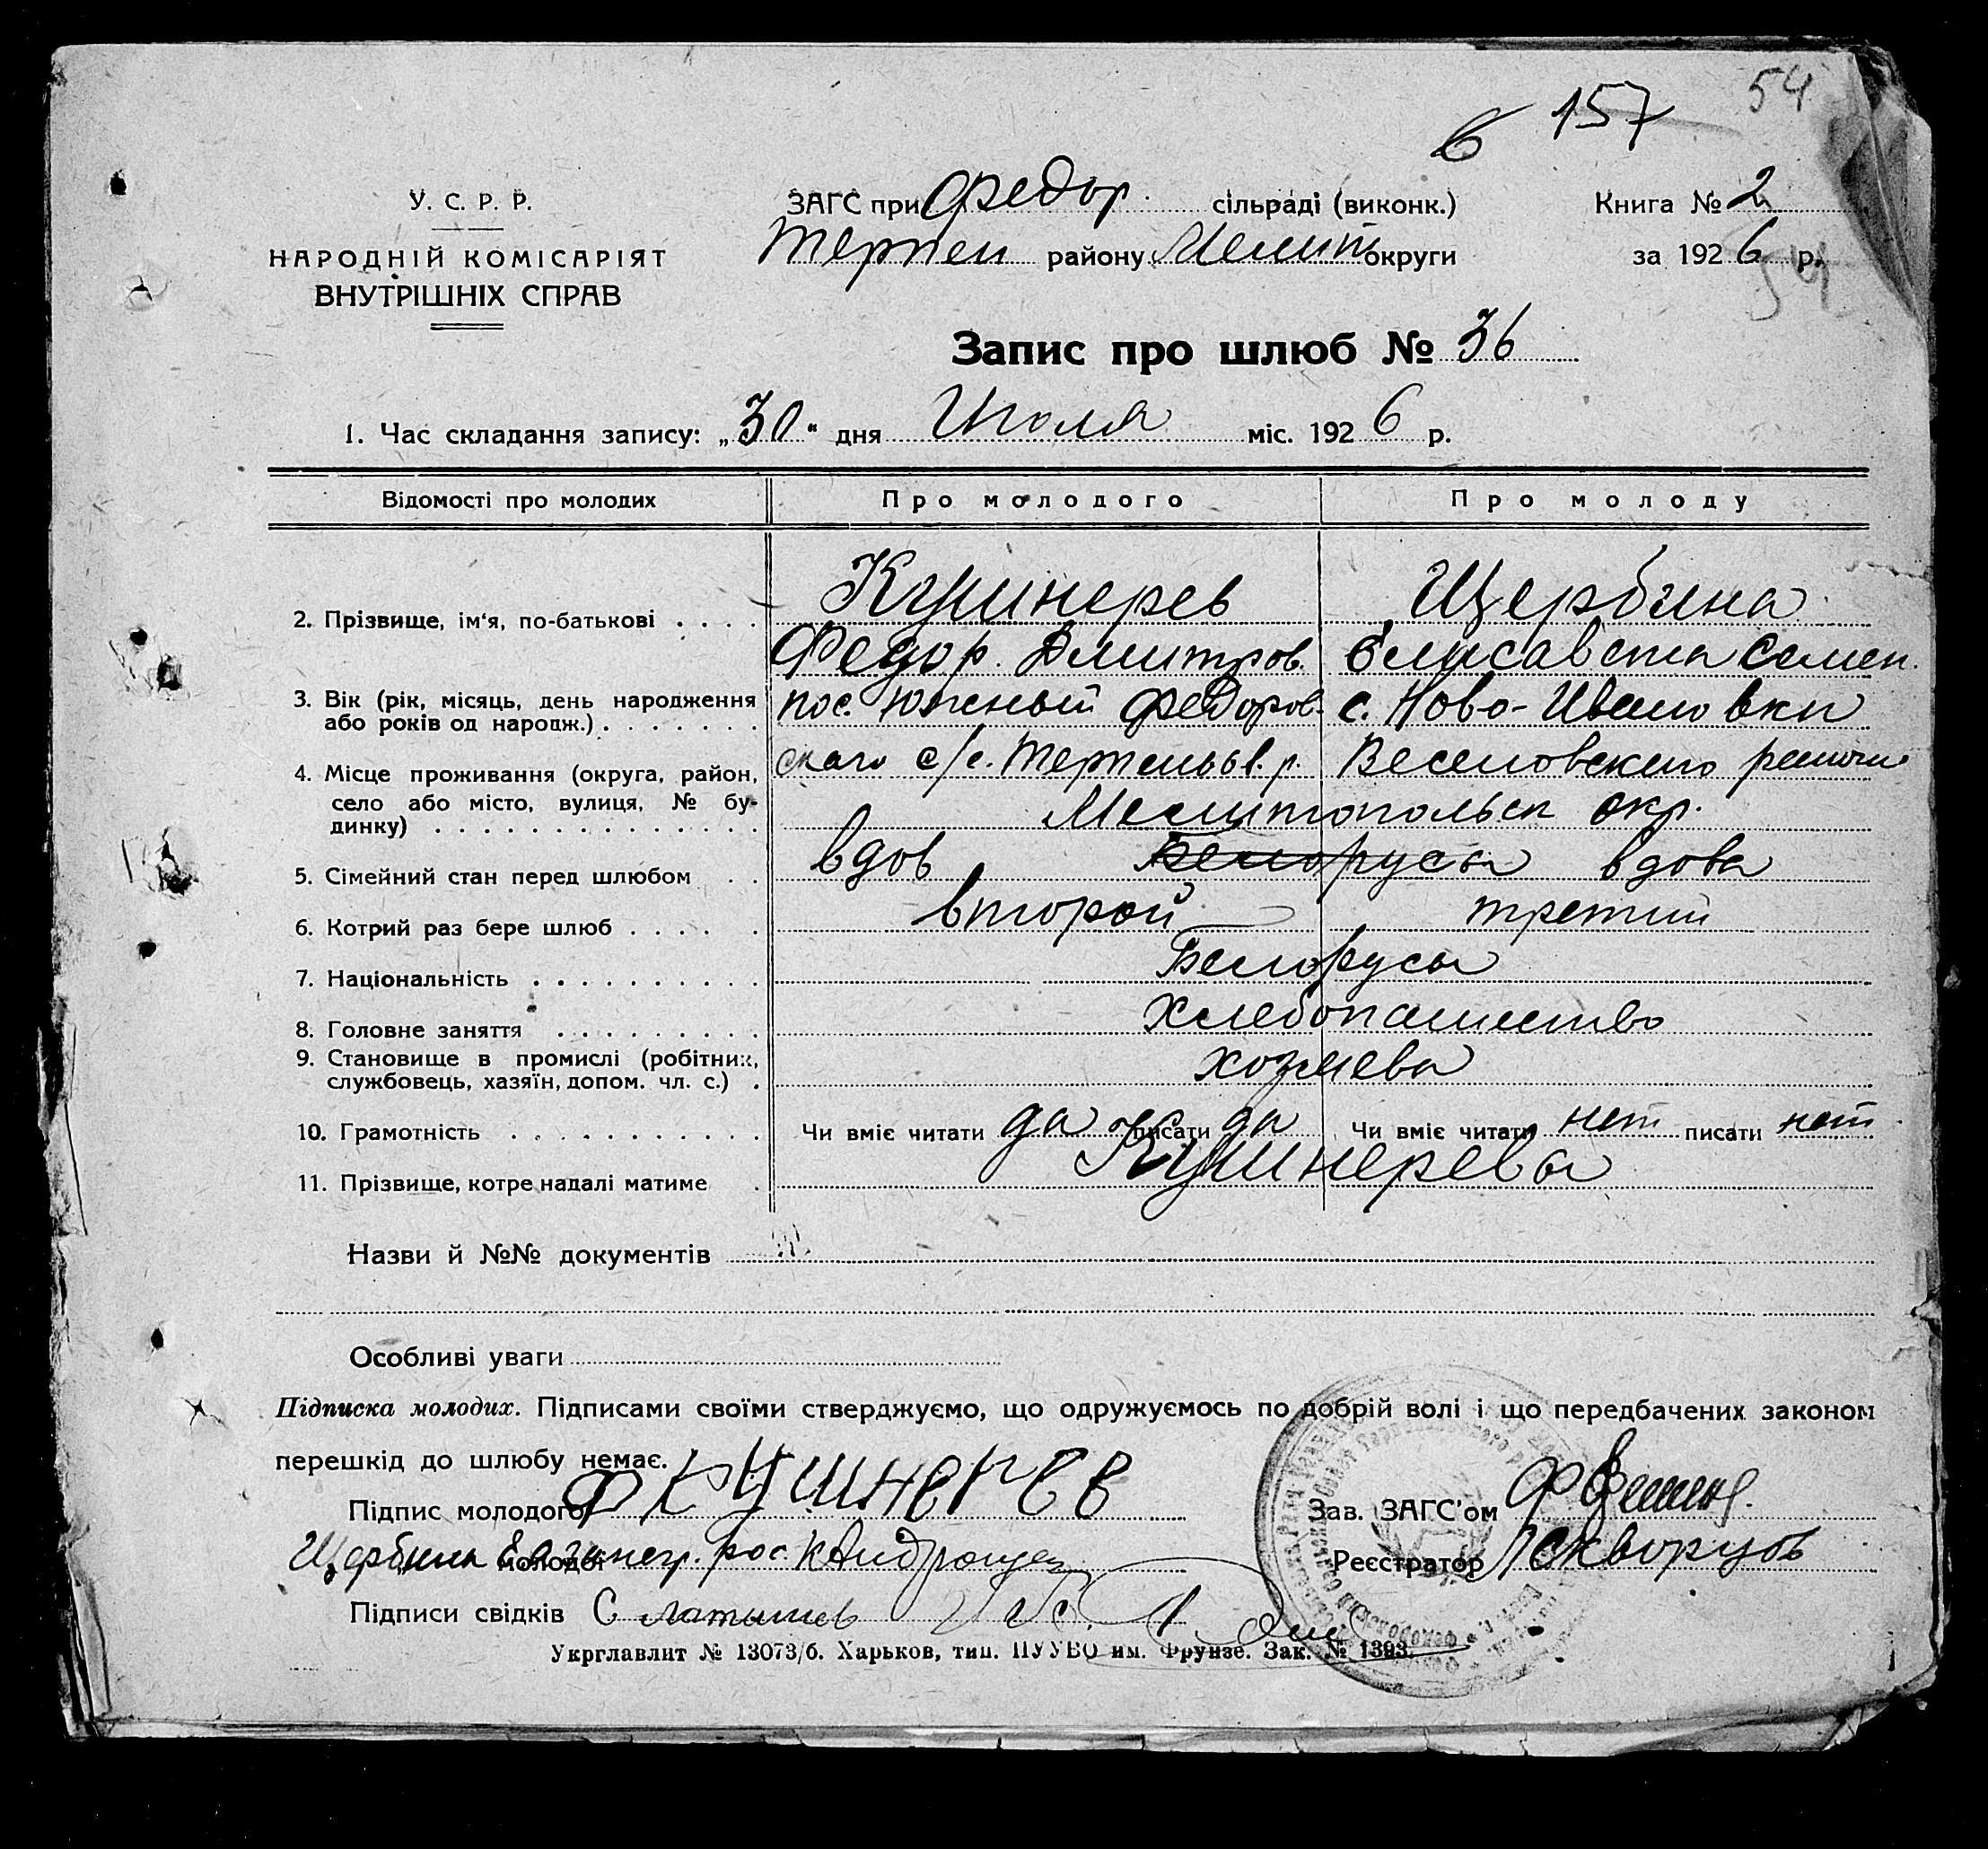 54
6 157
У. С. Р. Р.
НАРОДНІЙ КОМІСАРІЯТ
ВНУТРІШНІХ СПРАВ
ЗАГС при Федор. сільраді (виконк.)
Терпен району Мелит округи
Книга № 2
за 1926 р.
54
Запис про шлюб № 36
1. Час складання запису: „30" дня Июля міс. 1926 р.
Відомості про молодих Про молодого Про молоду
2. Прізвище, ім'я, по-батькові . . . . Кушнерев Щербина
Федор. Дмитров. Елисавета Семен.
3. Вік (рік, місяць, день народження пос. Южный Федоров- с. Ново-Ивановки
або років од народж.) . . . . . . .
4. Місце проживання (округа, район, скаго с/с. Терпеньев. р. Веселовского района
село або місто, вулиця, № бу- Мелитопольск окр.
динку) . . . . . . . . . . . . . .
5. Сімейний стан перед шлюбом . . вдов Белорусы вдова
6. Котрий раз бере шлюб . . . . . второй третий
7. Національність . . . . . . . . . . Белорусы
8. Головне заняття . . . . . . . . . Хлебопашество
9. Становище в промислі (робітник,
службовець, хазяїн, допом. чл. с.) . хозяева
10. Грамотність . . . . . . . . . . . Чи вміє читати да писати да Чи вміє читати нет писати нет
11. Прізвище, котре надалі матиме . Кушнеревы
Назви й №№ документів
Особливі уваги
Підписка молодих. Підписами своїми стверджуємо, що одружуємось по добрій волі і що передбачених законом
перешкід до шлюбу немає.
Підпис молодого Ф Кушнерев Зав. ЗАГС'ом
Щербина молодої Реєстратор Скворцов
Підписи свідків С Латышев
Укрглавлит № 13073/б. Харьков, тип. ПУУВО им. Фрунзе. Зак. № 1393.